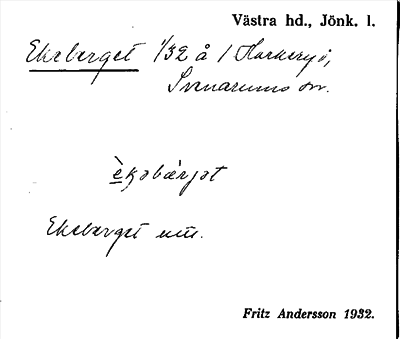 Västra hd., Jönk. l.
Ekeberget 1/32 å 1 Harkeryd,
Svenarums sn.
èkəbæ̀rjət
Ekeberget
Fritz Andersson 1932.